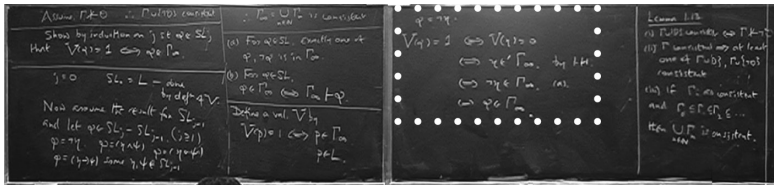 Assume Γ⊬θ ∴ Γ∪{¬θ} consistent
Show by induction on j if φ∈SLⱼ
that V̄(φ)=1 ⇔ φ∈Γ∞
j=0 SL₀ = L – done
by defn of V.
Now assume the result for SLⱼ₋₁
and let φ∈SLⱼ – SLⱼ₋₁ (j≥1)
φ=¬η, φ=(η∧ψ)
φ=(η→ψ) some η,ψ∈SLⱼ₋₁
∴ Γ∞ = ∪ Γₙ is consistent
n∈N
(a) For φ∈SL, exactly one of
φ, ¬φ is in Γ∞
(b) For φ∈SL
φ∈Γ∞ ⇔ Γ∞⊢φ
Define a val. V by
V(p)=1 ⇔ p∈Γ∞
p∈L.
φ=¬η.
V̄(φ)=1 ⇔ V̄(η)=0
⇔ η∉Γ∞ by I.H.
⇔ ¬η∈Γ∞ (a)
⇔ φ∈Γ∞
Lemma
(i) Γ∪{θ} consistent ⇔ Γ⊬¬θ
(ii) Γ consistent ⇒ at least
one of Γ∪{θ}, Γ∪{¬θ}
consistent
(iii) if Γᵢ are consistent
and Γ₀⊆Γ₁⊆Γ₂⊆…
then ∪Γₙ is consistent.
n∈N